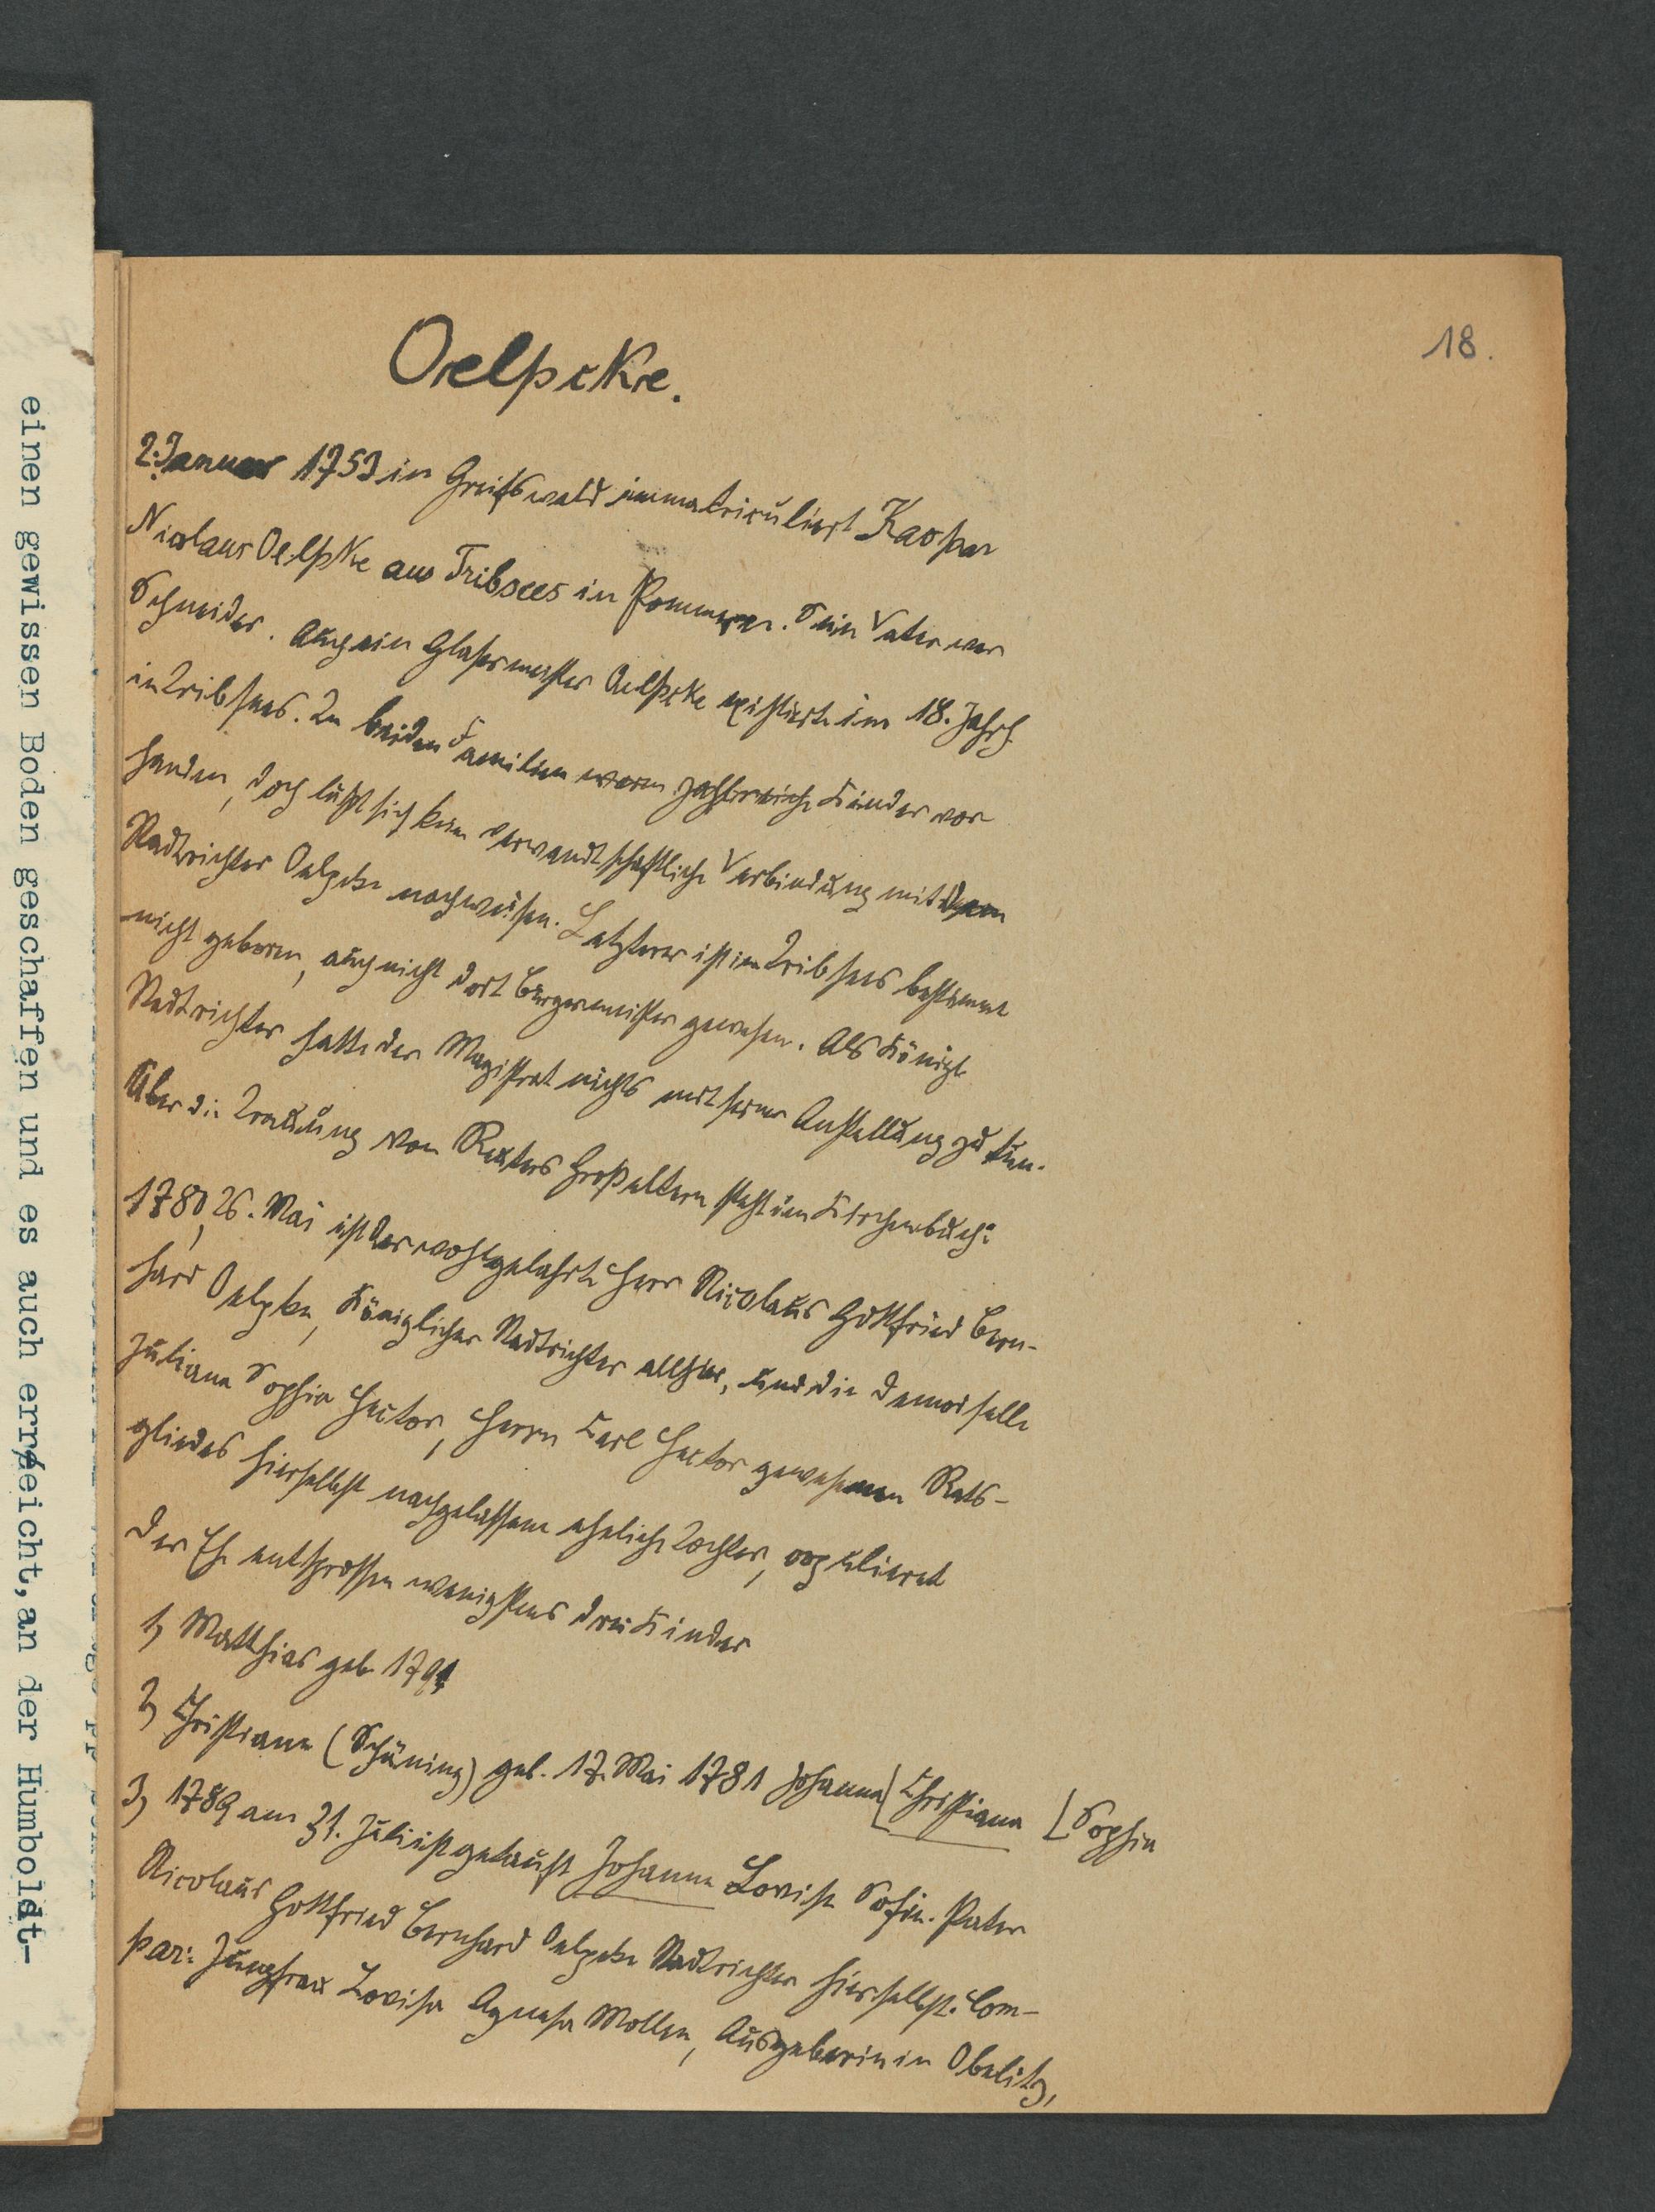 18.
Oelpcke.
2. Januar 1753 in Greifswald immatriculiert Kaspar
Nicolaus Oelpke aus Tribsees in Pommern. Sein Vater war
Schneider. Auch ein Glasermeister Oelpcke existierte im 18. Jahrh.
in Tribsees. In beiden Familien waren zahlreiche Kinder vor
handen, doch läßt sich keine verwandtschaftliche Verbindung mit dem
Stadtrichter Oelpcke nachweisen. Letzterer ist in Tribsees bestimmt
nicht geboren, auch nicht dort Bürgermeister gewesen. Als Königl.
Stadtrichter hatte der Magistrat nichts mit seiner Anstellung zu tun.
Über die Trauung von Reuters Großeltern steht im Kirchenbuch:
1780, 26. Mai ist der wohlgelahrte Herr Nicolaus Gottfried Bern-
hard Oelpke, Königlicher Stadtrichter allhier, und die Demoiselle
Juliana Sophia Hector, Herrn Carl Hector gewesenen Rats-
gliedes hierselbst nachgelassene eheliche Tochter, copulieret
Der Ehe entsprossen wenigstens drei Kinder
1, Matthias geb. 1791
2, Christiane (Schöning) geb. 17. Mai 1781 Johanna [Christiana [Sophia
3, 1789 am 31. Juli ist getauft Johanna Lovise Sofie. Pater
Nicolaus Gottfried Bernhard Oelpcke Stadtrichter hierselbst. Com-
par: Jungfrau Lovisa Agnesa Mollen, Ausgeberin in Obelitz,
einen gewissen Boden geschaffen und es auch erreicht, an der Humboldt-